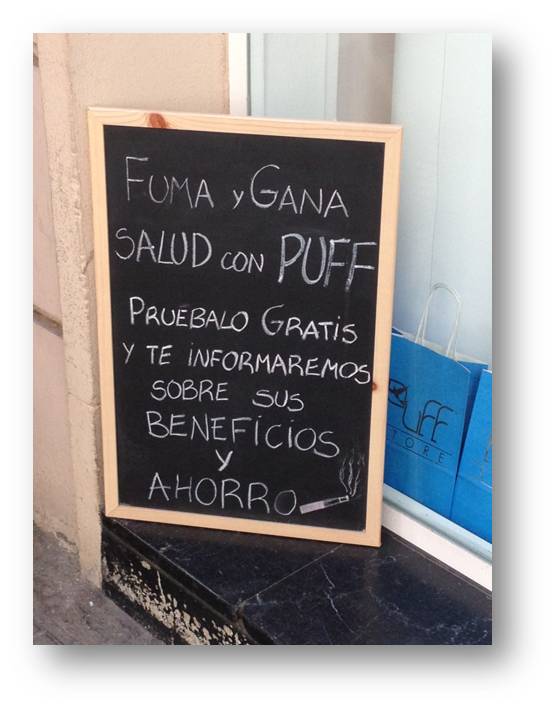 FUMA Y GANA
SALUD CON PUFF
PRUEBALO GRATIS
Y TE INFORMAREMOS
SOBRE SUS
BENEFICIOS
Y
AHORRO
PUFF
STORE